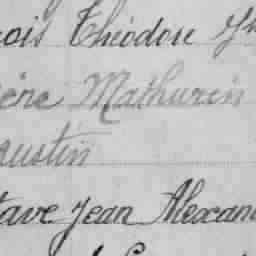 ois Théodore
ère Mathurin
ustin
tave Jean Alexan